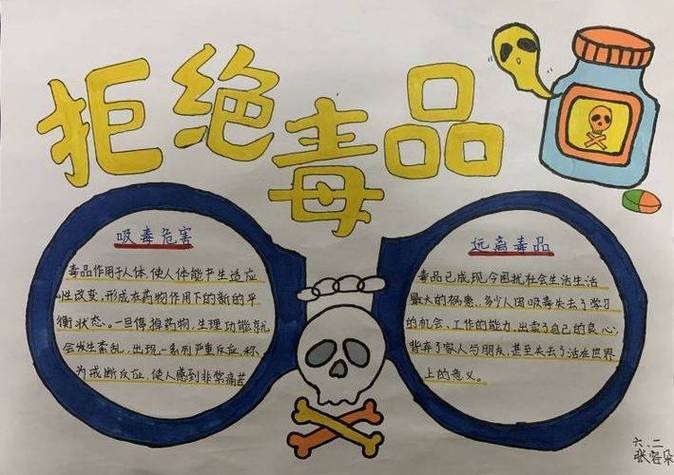 拒绝毒品
吸毒危害
毒品作用于人体,使人体能产生适应
性改变,形成在药物作用下的新的平
衡状态。一旦停掉药物,生理功能就
会发生紊乱,出现一系列严重反应,称
为戒断反应,使人感到非常痛苦
远离毒品
毒品已成现今困扰社会生活生活
最大的祸患,多少人因吸毒失去了学习
的机会、工作的能力,出卖了自己的良心,
背弃了家人与朋友,甚至失去了活在世界
上的意义。
六.二